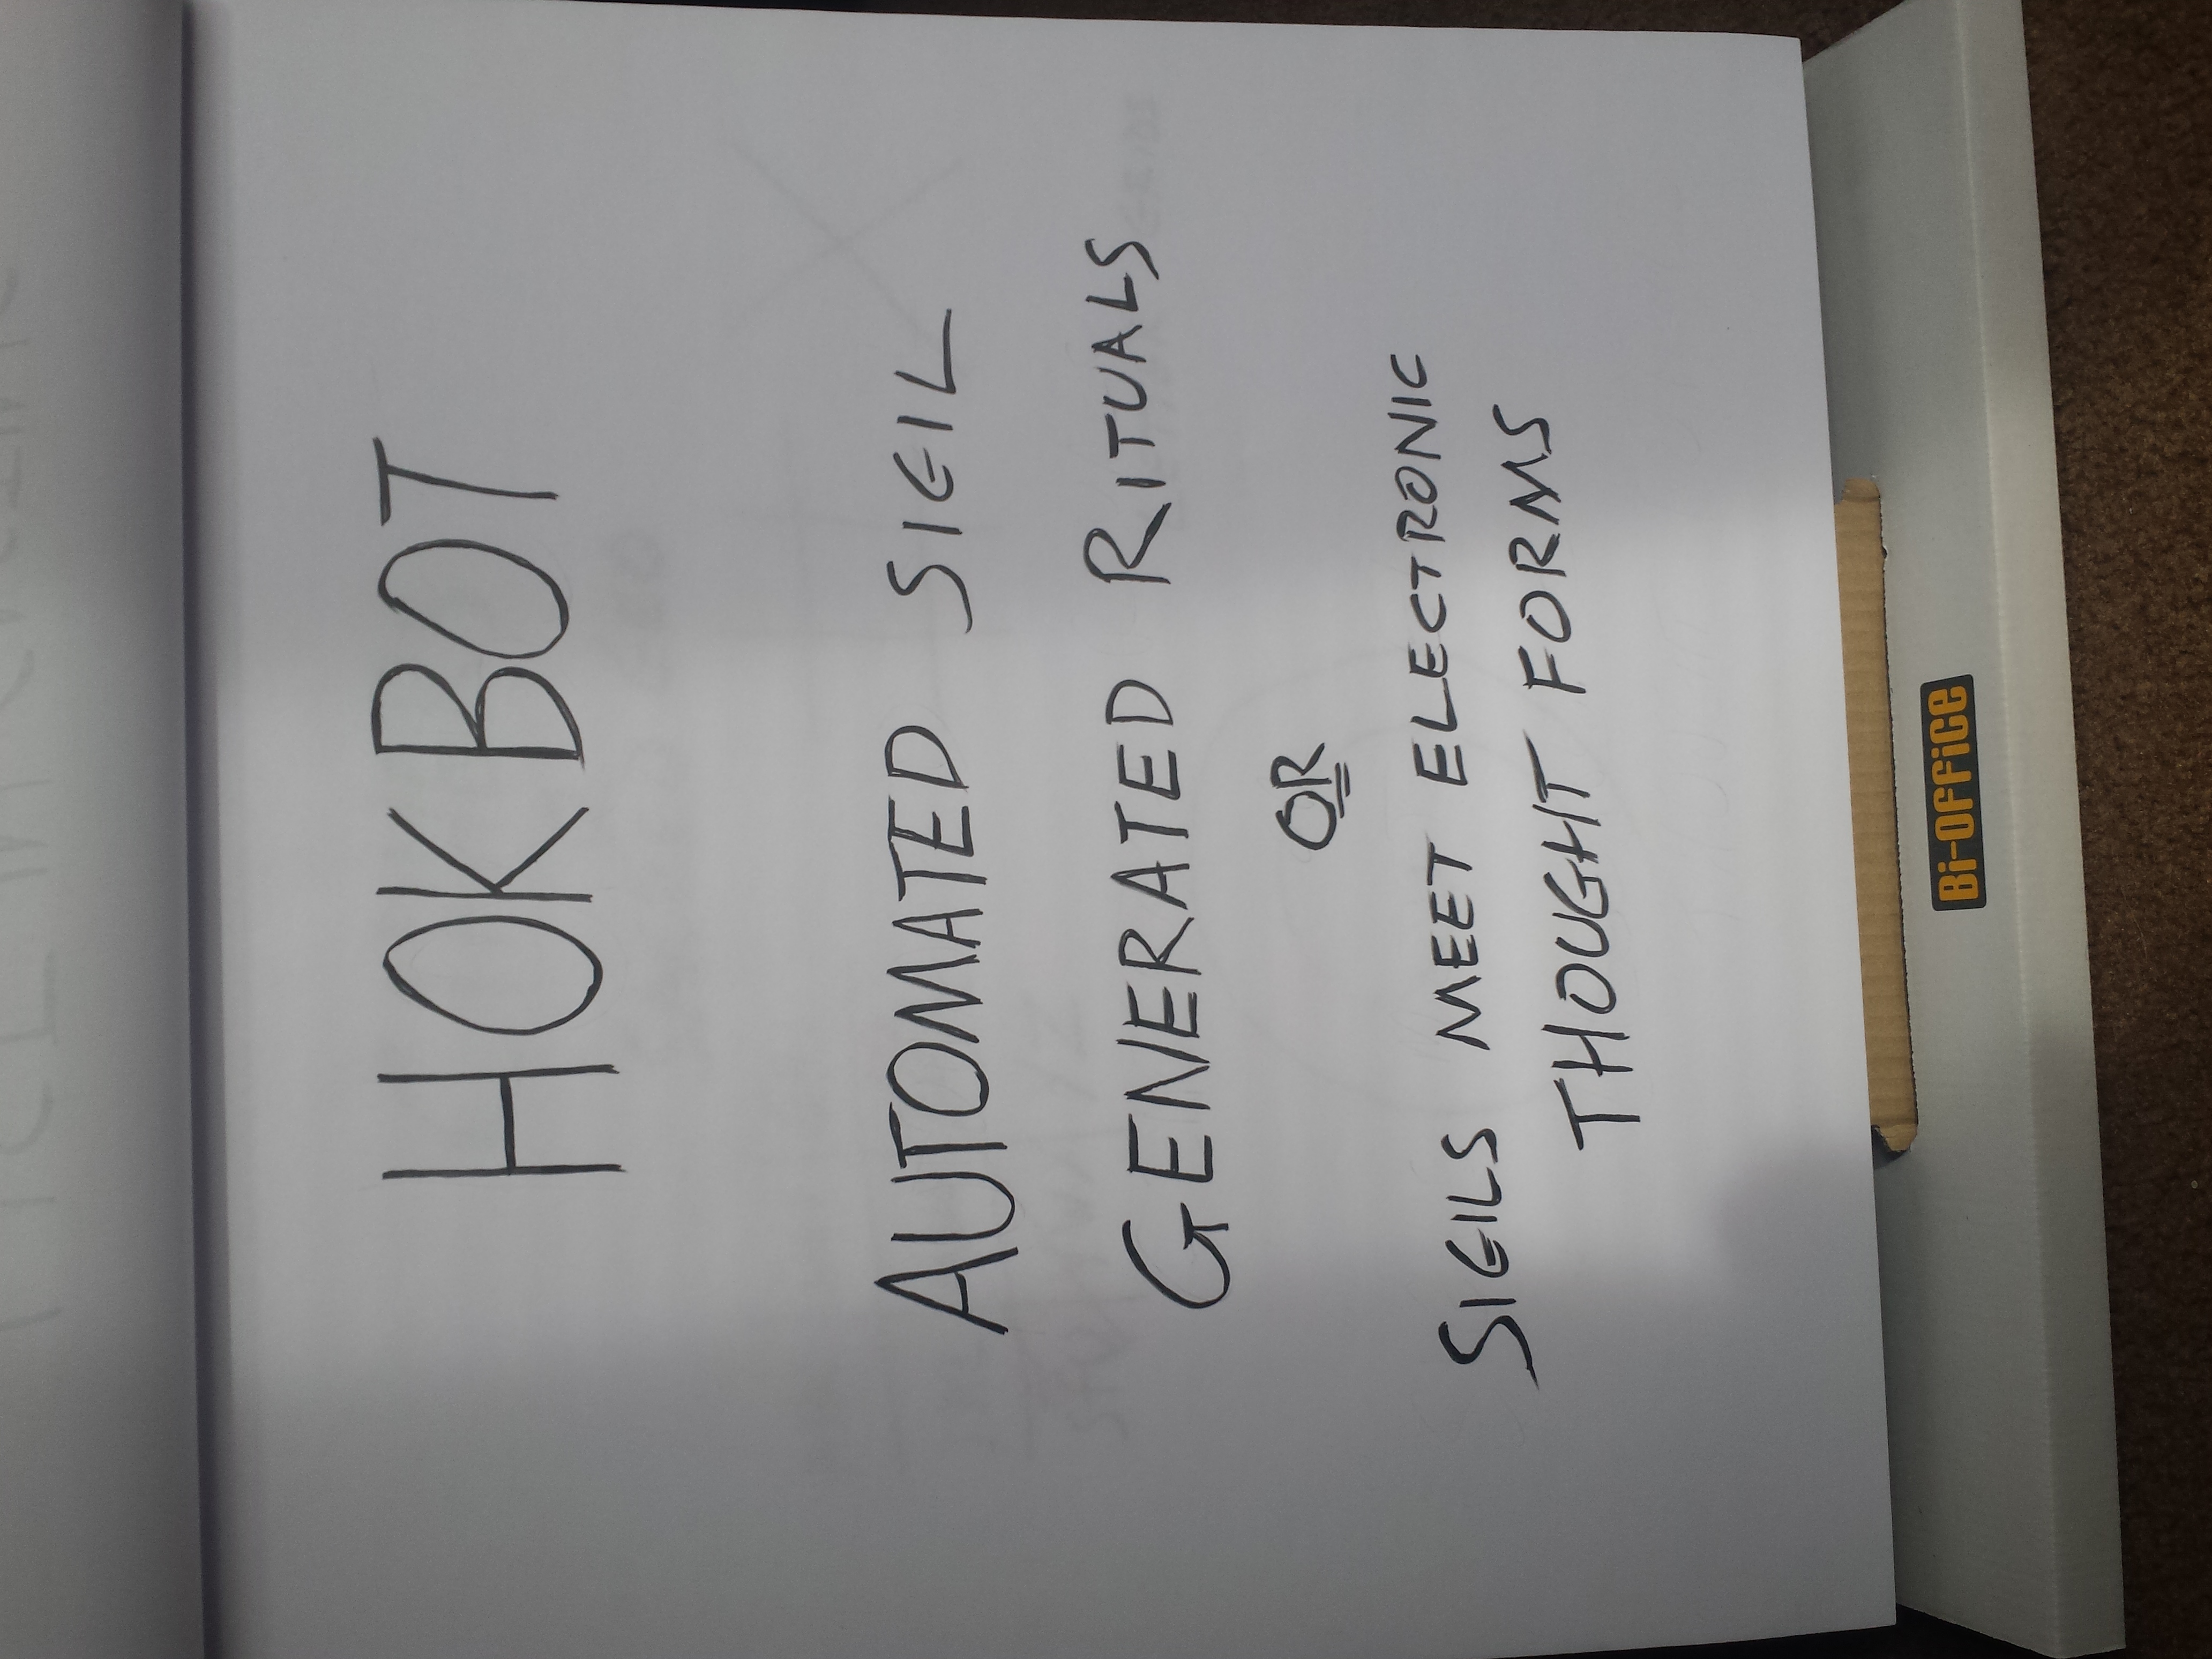 HOKBOT
AUTOMATED SIGIL
GENERATED RITUALS
OR
SIGILS MEET ELECTRONIC
THOUGHT FORMS
Bi-OFFiCE